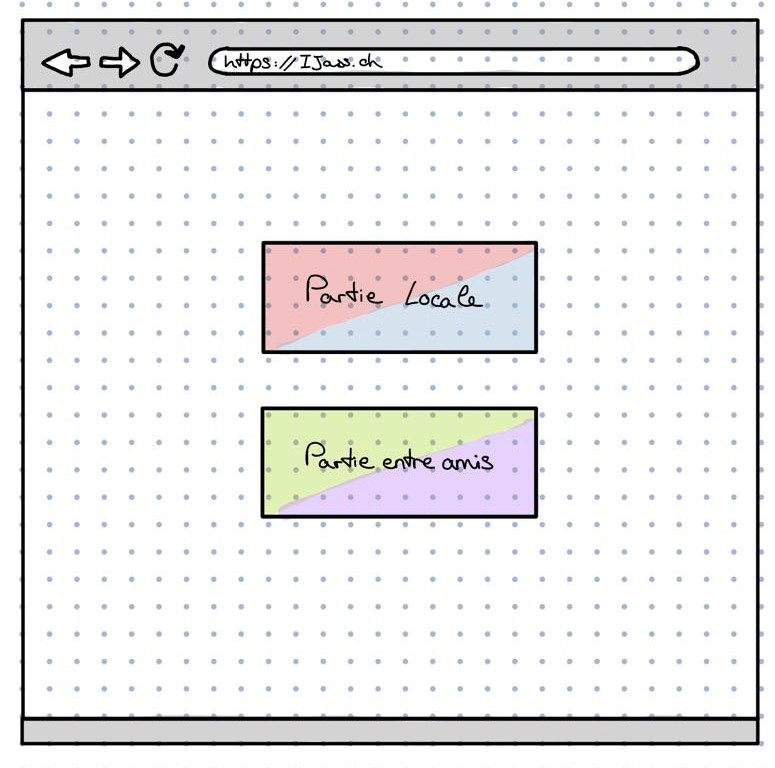 https://IJass.ch
Partie Locale
Partie entre amis